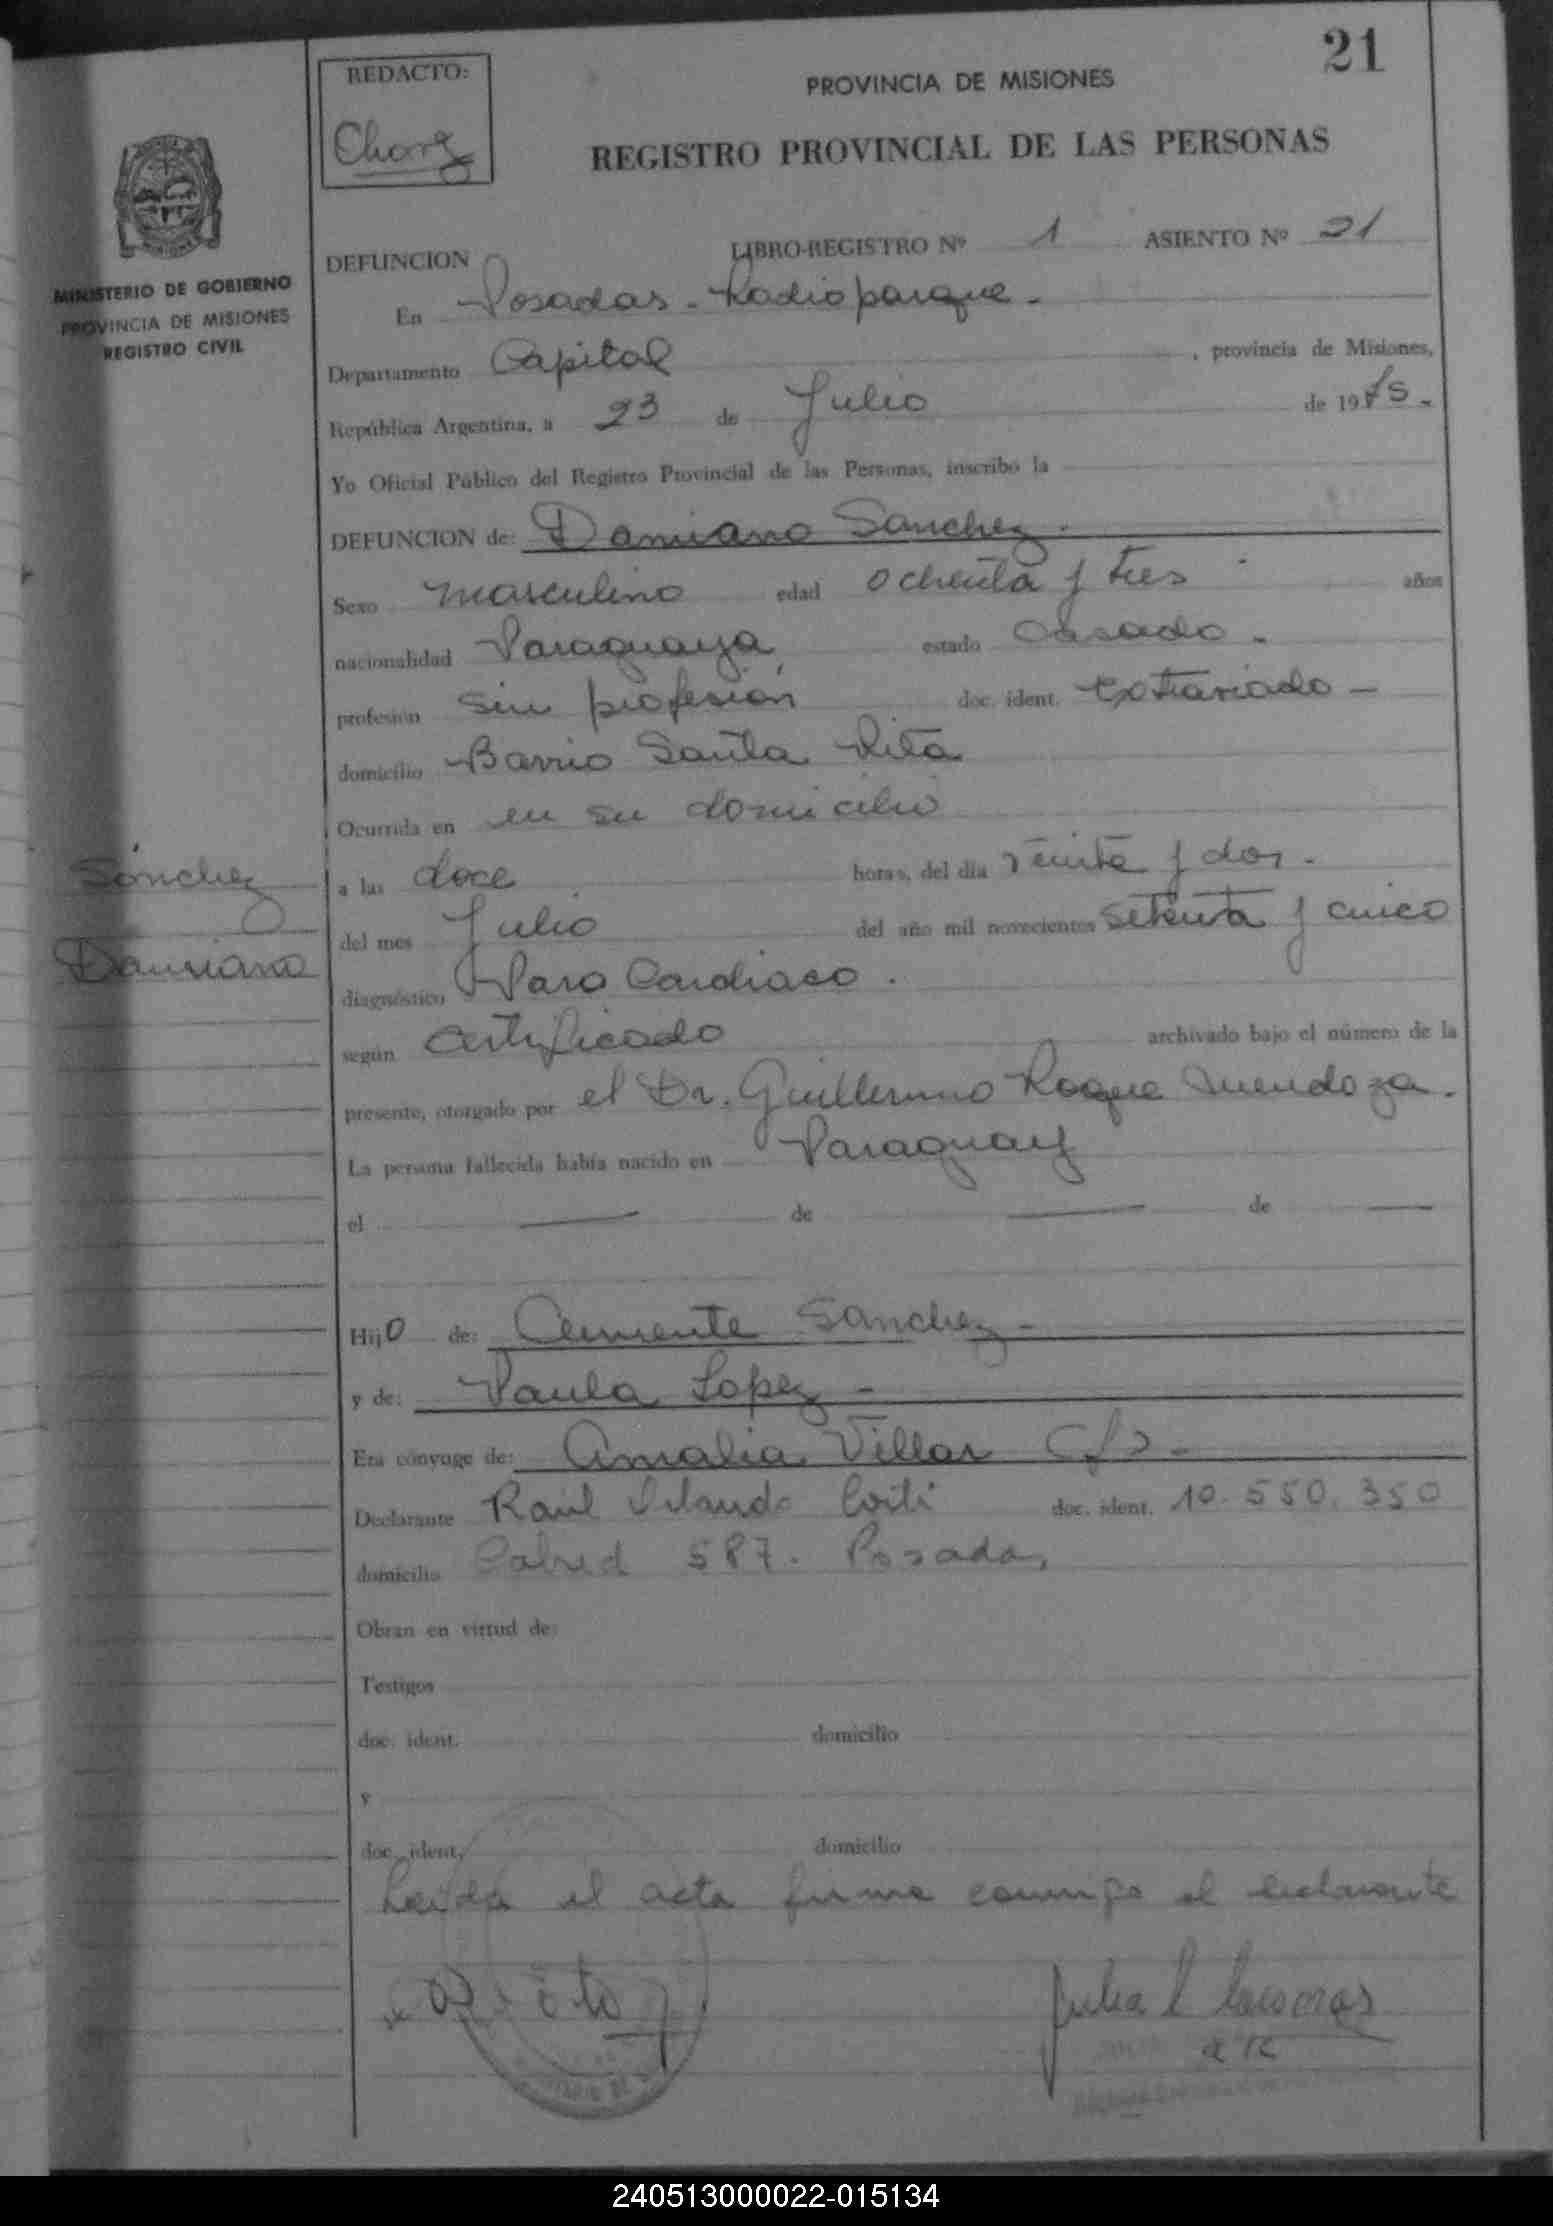 21
REDACTO:
PROVINCIA DE MISIONES
REGISTRO PROVINCIAL DE LAS PERSONAS
MINISTERIO DE GOBIERNO
PROVINCIA DE MISIONES
REGISTRO CIVIL
DEFUNCION LIBRO-REGISTRO Nº 1 ASIENTO Nº 21
En Posadas - Radioparque -
Departamento Capital, provincia de Misiones,
República Argentina, a 23 de Julio de 1975.-
Yo Oficial Público del Registro Provincial de las Personas, inscribo la
DEFUNCION de: Damiano Sanchez.
Sexo masculino edad ochenta y tres años
nacionalidad Paraguaya, estado casado.
profesión sin profesión doc. ident. extraviado -
domicilio Barrio Santa Rita
Ocurrida en en su domicilio
Sánchez
Damiano
a las doce horas, del día veinte y dos.
del mes Julio del año mil novecientos setenta y cinco
diagnóstico Paro Cardiaco.
según certificado archivado bajo el número de la
presente, otorgado por el Dr. Guillermo Roque Mendoza.
La persona fallecida había nacido en Paraguay
el — de — de —
Hijo de: Clemente Sanchez -
y de: Paula Lopez -
Era cónyuge de: Amalia Villar
Declarante Raúl doc. ident. 10.550.350
domicilio Cabred 587. Posadas
Obran en virtud de:
Testigos
doc. ident. domicilio
y
doc. ident. domicilio
Leida el acta firma conmigo el declarante
240513000022-015134